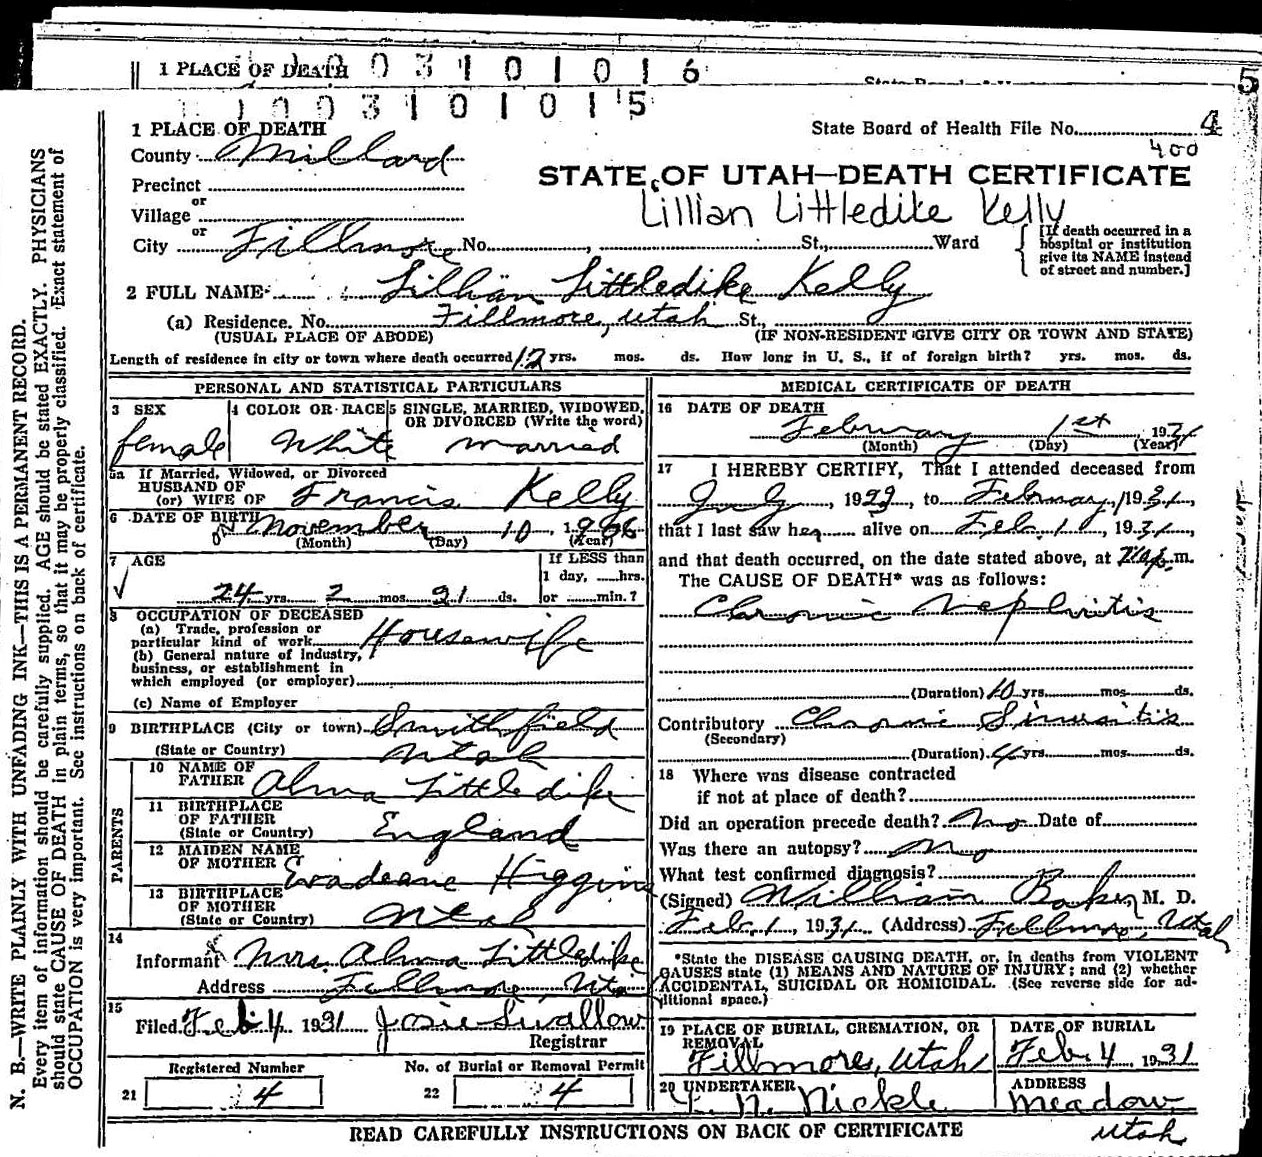 1 PLACE OF DEATH 1003101016
State Board of
5
1003101015
1 PLACE OF DEATH
State Board of Health File No. 4
400
County Millard
STATE OF UTAH—DEATH CERTIFICATE
Precinct
or
Lillian Littledike Kelly
Village
or
City Fillmore No. , St., Ward
[If death occurred in a hospital or institution give its NAME instead of street and number.]
2 FULL NAME Lillian Littledike Kelly
(a) Residence. No. Fillmore, Utah St.
(USUAL PLACE OF ABODE) (IF NON-RESIDENT GIVE CITY OR TOWN AND STATE)
Length of residence in city or town where death occurred 12 yrs. mos. ds. How long in U. S., if of foreign birth? yrs. mos. ds.
PERSONAL AND STATISTICAL PARTICULARS
3 SEX
female
4 COLOR OR RACE
White
5 SINGLE, MARRIED, WIDOWED, OR DIVORCED (Write the word)
married
5a If Married, Widowed, or Divorced
HUSBAND OF
(or) WIFE OF Francis Kelly
6 DATE OF BIRTH November 10, 1906
(Month) (Day) (Year)
7 AGE
24 yrs. 2 mos. 21 ds.
If LESS than
1 day, hrs.
or min.?
8 OCCUPATION OF DECEASED
(a) Trade, profession or
particular kind of work Housewife
(b) General nature of Industry,
business, or establishment in
which employed (or employer)
(c) Name of Employer
9 BIRTHPLACE (City or town) Smithfield
(State or Country) Utah
PARENTS
10 NAME OF
FATHER Alma Littledike
11 BIRTHPLACE
OF FATHER
(State or Country) England
12 MAIDEN NAME
OF MOTHER Evadeane Higgins
13 BIRTHPLACE
OF MOTHER
(State or Country) Utah
14
Informant Mrs. Alma Littledike
Address Fillmore, Uta
15
Filed Feb 4 1931 Josie Swallow
Registrar
Registered Number
21 4
No. of Burial or Removal Permit
22 4
MEDICAL CERTIFICATE OF DEATH
16 DATE OF DEATH
February 1st 1931
(Month) (Day) (Year)
17 I HEREBY CERTIFY, That I attended deceased from
July, 1929, to February, 1931,
that I last saw her alive on Feb. 1, 1931,
and that death occurred, on the date stated above, at m.
The CAUSE OF DEATH* was as follows:
Chronic Nephritis
(Duration) 10 yrs. mos. ds.
Contributory Chronic Sinusitis
(Secondary)
(Duration) 4 yrs. mos. ds.
18 Where was disease contracted
if not at place of death?
Did an operation precede death? No Date of
Was there an autopsy? No
What test confirmed diagnosis?
(Signed) William Baker M. D.
Feb. 1, 1931 (Address) Fillmore, Utah
*State the DISEASE CAUSING DEATH, or, in deaths from VIOLENT
CAUSES state (1) MEANS AND NATURE OF INJURY; and (2) whether
ACCIDENTAL, SUICIDAL OR HOMICIDAL. (See reverse side for ad-
ditional space.)
19 PLACE OF BURIAL, CREMATION, OR
REMOVAL
Fillmore, Utah
DATE OF BURIAL
Feb. 4, 1931
20 UNDERTAKER
N. Nickle
ADDRESS
Meadow
Utah
READ CAREFULLY INSTRUCTIONS ON BACK OF CERTIFICATE
N. B.—WRITE PLAINLY WITH UNFADING INK—THIS IS A PERMANENT RECORD.
Every item of information should be carefully supplied. AGE should be stated EXACTLY. PHYSICIANS
should state CAUSE OF DEATH in plain terms, so that it may be properly classified. Exact statement of
OCCUPATION is very important. See instructions on back of certificate.